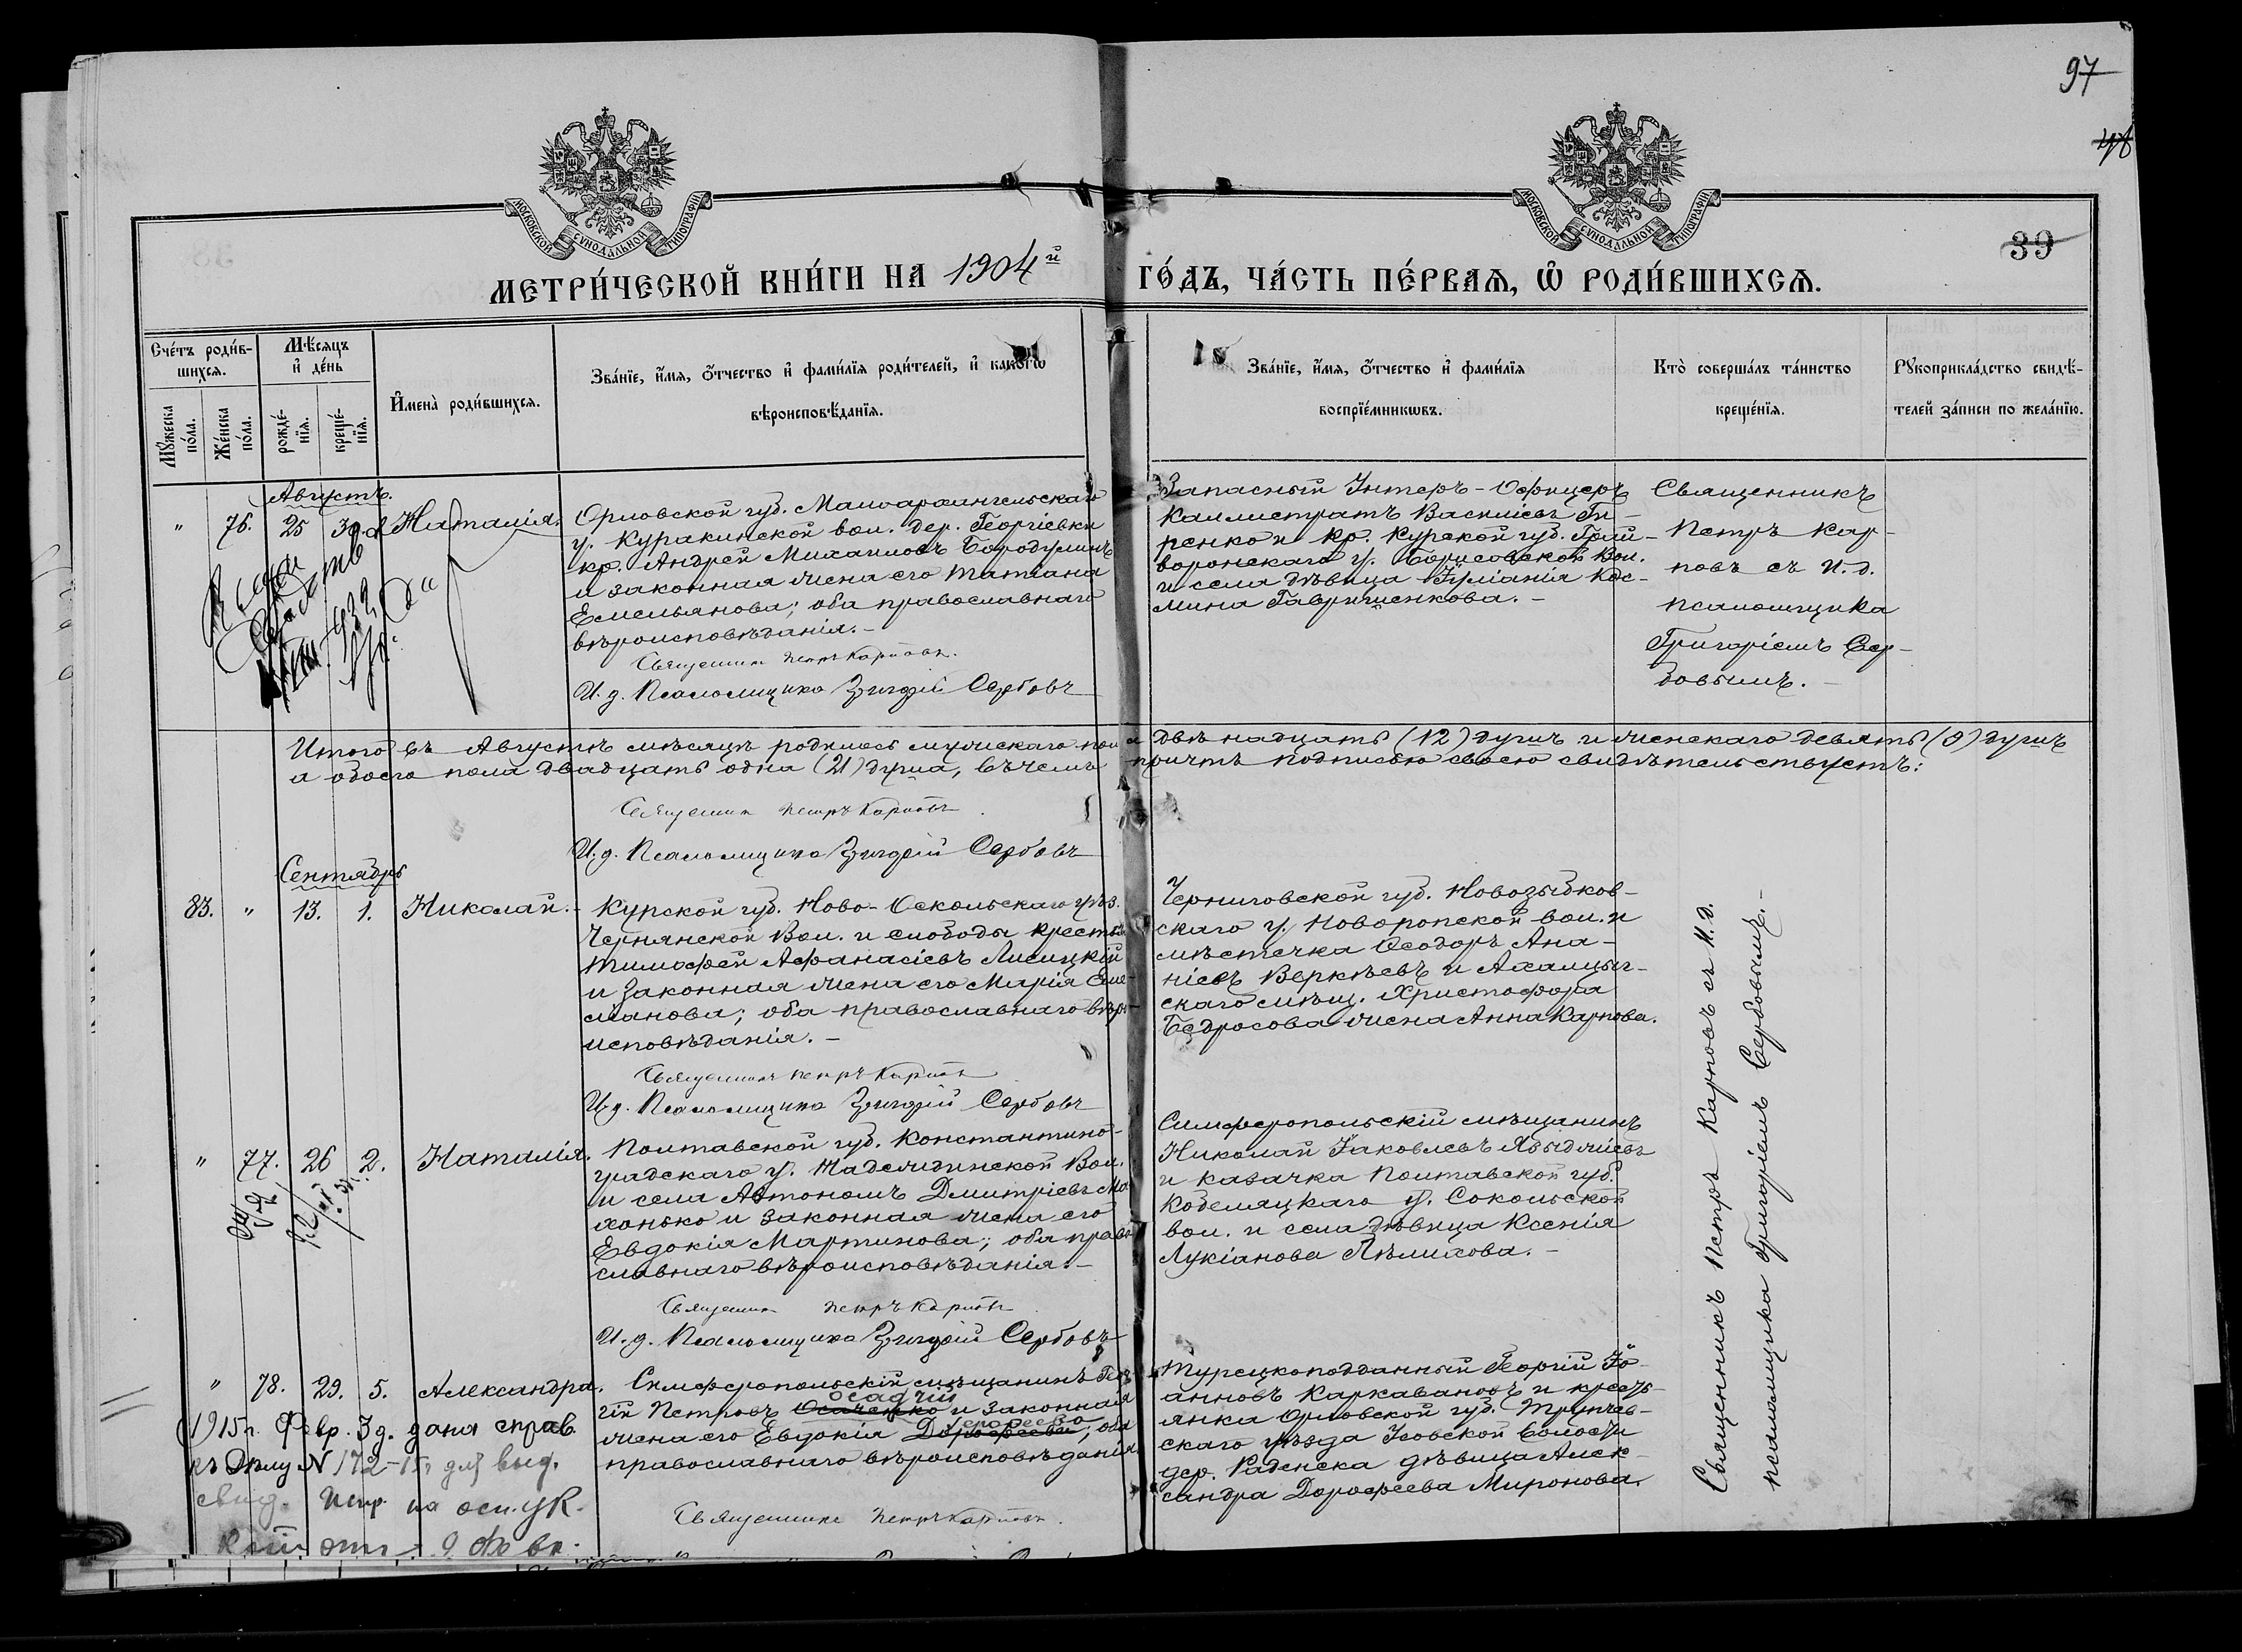 97
39
МОСКОВСКОЙ СѴНОДАЛЬНОЙ ТИПОГРАФІИ
МОСКОВСКОЙ СѴНОДАЛЬНОЙ ТИПОГРАФІИ
МЕТРИ́ЧЕСКОЙ КНИ́ГИ НА 1904й ГО́ДЪ, ЧА́СТЬ ПЕ́РВАѦ, Ѡ РОДИ́ВШИХСѦ.
Сче́тъ роди́в-
шихсѧ.
Мꙋ́жеска по́ла.
Же́нска по́ла.
Мѣ́сѧцъ
и҆ де́нь
рожде́-
нїѧ.
креще́-
нїѧ.
И҆мена̀ роди́вшихсѧ.
Зва́нїе, и҆́мѧ, ѻ҆́тчество и҆ фами́лїѧ роди́телей, и҆ како́гѡ
вѣроисповѣ́данїѧ.
Зва́нїе, и҆́мѧ, ѻ҆́тчество и҆ фами́лїѧ
воспрїе́мникѡвъ.
Кто̀ соверша́лъ та́инство
креще́нїѧ.
Рꙋкоприкла́дство свидѣ́-
телей за́писи по жела́нїю.
Августъ.
" 76. 25 30. Наталія.
Орловской губ. Малоархангельскаго
у. Куракинской вол. дер. Георгіевки
кр. Андрей Михаиловъ Бородулинъ
и законная жена его Татіана
Емельянова; оба православнаго
вѣроисповѣданія. –
Священникъ Петръ Карповъ.
И. д. Псаломщика Григорій Сербовъ
Запасный Унтеръ-Офицеръ
Каллистратъ Васильевъ Ги-
ренко и кр. Курской губ. Грай-
воронскаго у. Борисовской Вол.
и села дѣвица Іуліанія Кос-
мина Гавришенкова. –
Священникъ
Петръ Кар-
повъ съ И. д.
псаломщика
Григоріемъ Сер-
бовымъ. –
Итого въ Августѣ мѣсяцѣ родилось мужскаго пола двѣнадцать (12) душъ и женскаго девять (9) душъ
а обоего пола двадцать одна (21) душа, въ чемъ причтъ подписью своею свидѣтельствуетъ:
Священникъ Петръ Карповъ
И. д. Псаломщика Григорій Сербовъ
Сентябрь
83. " 13. 1. Николай. –
Курской губ. Ново-Оскольскаго уѣз.
Чернянской Вол. и слободы крест.
Тимофей Афанасіевъ Лисицкій
и законная жена его Марія Сте-
фанова; оба православнаго вѣро-
исповѣданія. –
Священникъ Петръ Карповъ
И. д. Псаломщика Григорій Сербовъ
Черниговской губ. Новозыбков-
скаго у. Новоропской вол. и
мѣстечка Ѳеодоръ Ана-
ніевъ Веркѣевъ и Ахалцых-
скаго мѣщ. Христофора
Бедросова жена Анна Карпова.
Священникъ Петръ Карповъ съ И. д.
псаломщика Григоріемъ Сербовымъ. –
" 77. 26 2. Наталія.
Полтавской губ. Константино-
градскаго у. Надеждинской Вол.
и села Автономъ Дмитріевъ Ма-
хонько и законная жена его
Евдокія Мартинова; оба право-
славнаго вѣроисповѣданія. –
Священникъ Петръ Карповъ
И. д. Псаломщика Григорій Сербовъ
Симферопольскій мѣщанинъ
Николай Іаковлевъ
и казачка Полтавской губ.
Кобеляцкаго у. Сокольской
вол. и села дѣвица Ксенія
Лукіанова –
" 78. 29. 5. Александра.
Симферопольскій мѣщанинъ Геор-
Осадчій
гій Петровъ Осаченко и законная
жена его Евдокія Дорофеева; оба
православнаго вѣроисповѣданія.
Священникъ Петръ Карповъ.
Турецкоподданный Георгій Іо-
анновъ Каркавановъ и кресть-
янка Орловской губ. Трубчев-
скаго уѣзда Усовской Волости
дер. Раденска дѣвица Алек-
сандра Дорофеева Миронова.
1915 г. Февр. 3 д. дана справ.
къ Дѣлу № 172-15 г для выд.
свид. Испр. на осн. ук.
9 Февр.